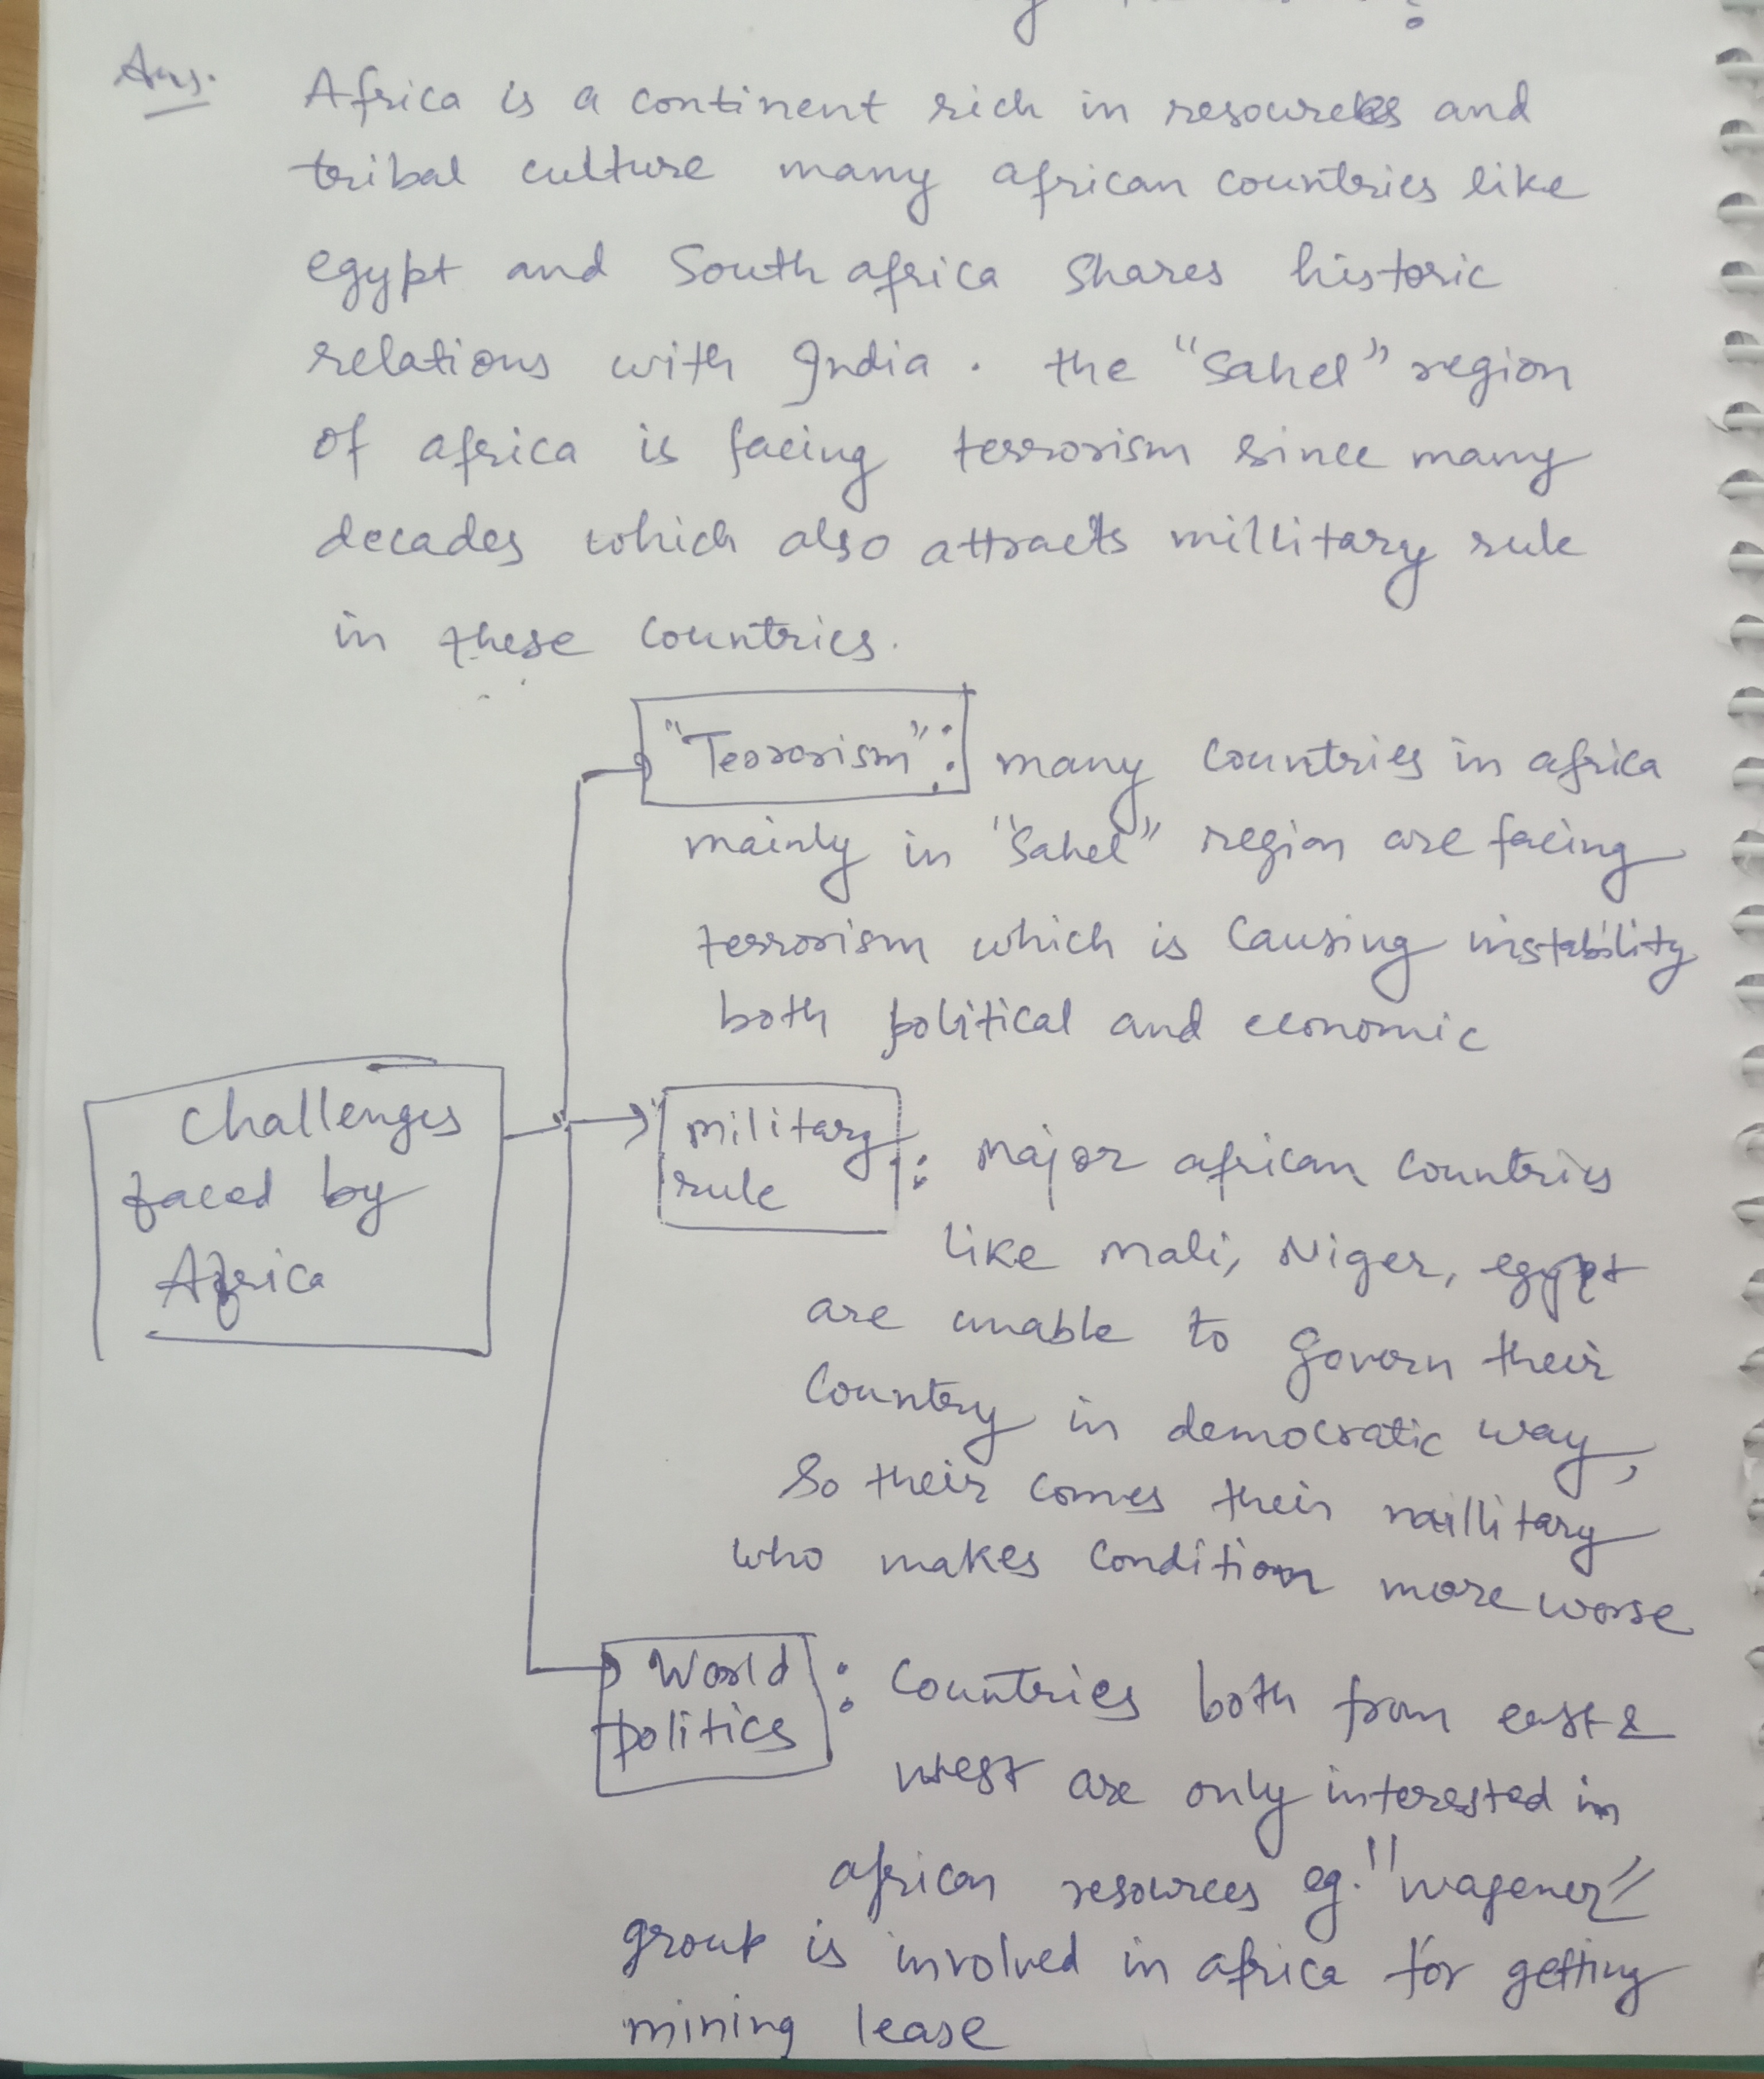 Ans. Africa is a continent rich in resources and
tribal culture many african countries like
egypt and South africa shares historic
relations with India. the "Sahel" region
of africa is facing terrorism since many
decades which also attracts millitary rule
in these countries.
"Terrorism": many countries in africa
mainly in "Sahel" region are facing
terrorism which is causing instability
both political and economic
Challenges
faced by
Africa
military
rule
: Major african countries
like mali, Niger, egypt
are unable to govern their
country in democratic way,
So their comes their millitary
who makes condition more worse
World
politics
: Countries both from east &
west are only interested in
african resources eg. "wagener"
group is involved in africa for getting
mining lease